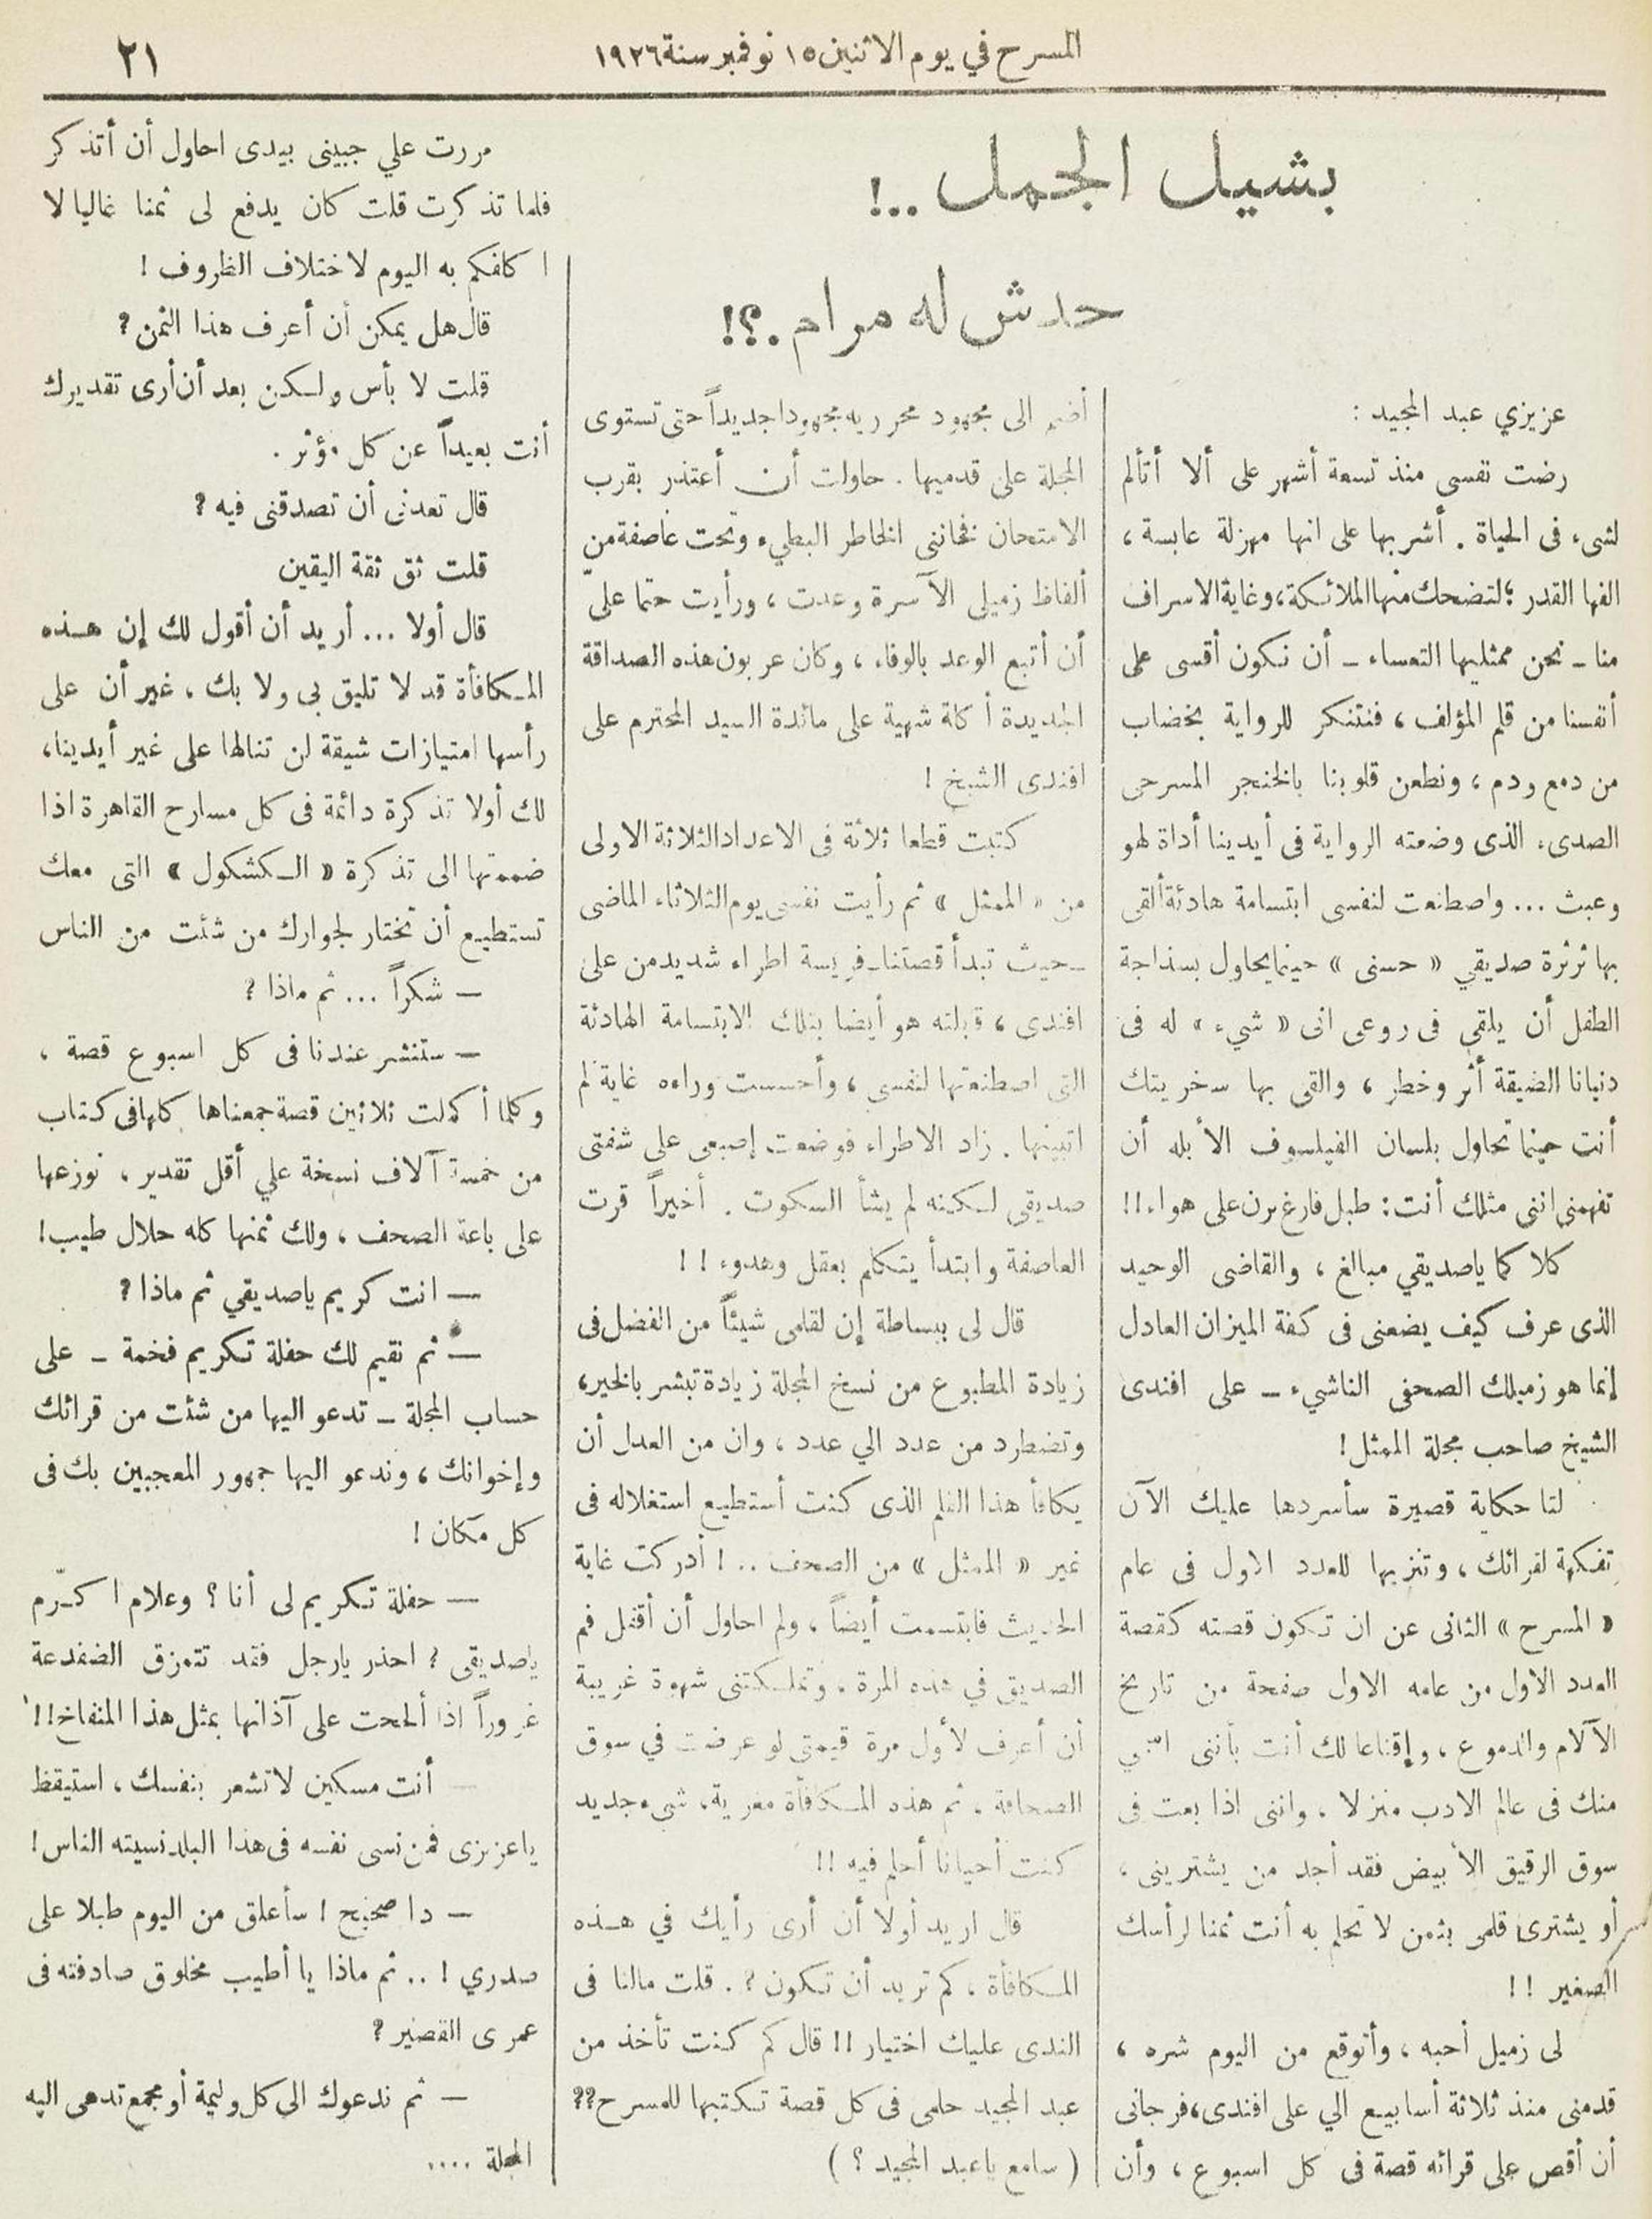 المسرح في يوم الاثنين ١٥ نوفمبر سنة ١٩٢٦
٢١
بشيل الجمل ..!
حدش له مرام .؟!
عزيزي عبد المجيد :
رضت نفسى منذ تسعة أشهر على ألا أتألم
لشىء فى الحياة . أشربها على انها مهزلة عابسة ،
الفها القدر ؛ لتضحك منها الملائكة، وغاية الاسراف
منا ــ نحن ممثليها التعساء ــ أن نكون أقسى على
أنفسنا من قلم المؤلف ، فنتنكر للرواية بخضاب
من دمع ودم ، ونطعن قلوبنا بالخنجر المسرحى
الصدىء الذى وضعته الرواية فى أيدينا أداة لهو
وعبث ... واصطنعت لنفسى ابتسامة هادئة ألقى
بها ثرثرة صديقي « حسنى » حينما يحاول بسذاجة
الطفل أن يلقي فى روعى انى « شيء » له فى
دنيانا الضيقة أثر وخطر ، والقى بها سخريتك
أنت حينما تحاول بلسان الفيلسوف الأبله أن
تفهمنى اننى مثلك أنت : طبل فارغ يرن على هواء !!
كلا كما ياصديقي مبالغ ، والقاضى الوحيد
الذى عرف كيف يضعنى فى كفة الميزان العادل
إنما هو زميلك الصحفى الناشيء ــ على افندى
الشيخ صاحب مجلة الممثل !
لنا حكاية قصيرة سأسردها عليك الآن
تفكهة لقرائك ، وتنزيها للعدد الاول فى عام
« المسرح » الثانى عن ان تكون قصته كقصة
العدد الاول من عامه الاول صفحة من تاريخ
الآلام والدموع ، وإقناعا لك أنت بأننى
منك فى عالم الادب منزلا . واننى اذا بعت فى
سوق الرقيق الأبيض فقد أجد من يشترينى ،
أو يشترى قلمى بثمن لا تحلم به أنت ثمنا لرأسك
الصغير !!
لى زميل أحبه ، وأتوقع من اليوم شره ،
قدمنى منذ ثلاثة أسابيع الي على افندى، فرجانى
أن أقص على قرائه قصة فى كل اسبوع ، وأن
أضم الى مجهود محرريه مجهودا جديداً حتى تستوى
المجلة على قدميها . حاولت أن أعتذر بقرب
الامتحان فخاننى الخاطر البطيء وتحت عاصفة من
ألفاظ زميلى الآسرة وعدت ، ورأيت حتما علىّ
أن أتبع الوعد بالوفاء ، وكان عربون هذه الصداقة
الجديدة أكلة شهية على مائدة السيد المحترم على
افندى الشيخ !
كتبت قطعا ثلاثة فى الاعداد الثلاثة الاولى
من « الممثل » ثم رأيت نفسى يوم الثلاثاء الماضى
ــ حيث تبدأ قصتنا ــ فريسة اطراء شديد من على
افندى ، قبلته هو أيضا بتلك الابتسامة الهادئة
التى اصطنعتها لنفسى ، وأحسست وراءه غاية لم
اتبينها . زاد الاطراء فوضعت إصبعى على شفتى
صديقى لكنه لم يشأ السكوت . أخيراً قرت
العاصفة وابتدأ يتكلم بعقل وهدوء !!
قال لى ببساطة إن لقلمى شيئاً من الفضل فى
زيادة المطبوع من نسخ المجلة زيادة تبشر بالخير ،
وتضطرد من عدد الي عدد ، وان من العدل أن
يكافأ هذا القلم الذى كنت أستطيع استغلاله فى
غير « الممثل » من الصحف .. ! أدركت غاية
الحديث فابتسمت أيضاً ، ولم احاول أن أقفل فم
الصديق في هذه المرة ، وتملكتنى شهوة غريبة
أن أعرف لأول مرة قيمتى لو عرضت في سوق
الصحافة ، ثم هذه المكافأة مغرية، شىء جديد
كنت أحيانا أحلم فيه !!
قال اريد أولا أن أرى رأيك في هذه
المكافأة ، كم تريد أن تكون ؟ . قلت مالنا فى
الندى عليك اختيار !! قال كم كنت تأخذ من
عبد المجيد حلمى فى كل قصة تكتبها للمسرح ؟؟
( سامع ياعبد المجيد ؟ )
مررت علي جبينى بيدى احاول أن أتذكر
فلما تذكرت قلت كان يدفع لى ثمنا غاليا لا
اكلفكم به اليوم لاختلاف الظروف !
قال هل يمكن أن أعرف هذا الثمن ؟
قلت لا بأس ولكن بعد أن أرى تقديرك
أنت بعيداً عن كل مؤثر .
قال تعدنى أن تصدقنى فيه ؟
قلت ثق ثقة اليقين
قال أولا ... أريد أن أقول لك إن هذه
المكافأة قد لا تليق بى ولا بك ، غير أن على
رأسها امتيازات شيقة لن تنالها على غير أيدينا،
لك أولا تذكرة دائمة فى كل مسارح القاهرة اذا
ضممتها الى تذكرة « الكشكول » التى معك
تستطيع أن تختار لجوارك من شئت من الناس
ــ شكراً ... ثم ماذا ؟
ــ ستنشر عندنا فى كل اسبوع قصة ،
وكلما أكملت ثلاثين قصة جمعناها كلها فى كتاب
من خمسة آلاف نسخة علي أقل تقدير ، نوزعها
على باعة الصحف ، ولك ثمنها كله حلال طيب !
ــ انت كريم ياصديقي ثم ماذا ؟
ــ ثم نقيم لك حفلة تكريم فخمة ــ على
حساب المجلة ــ تدعو اليها من شئت من قرائك
وإخوانك ، وندعو اليها جمهور المعجبين بك فى
كل مكان !
ــ حفلة تكريم لى أنا ؟ وعلام اكرّم
ياصديقى ؟ احذر يارجل فقد تتمزق الضفدعة
غروراً اذا ألححت على آذانها بمثل هذا المنفاخ !!
ــ أنت مسكين لا تشعر بنفسك ، استيقظ
ياعزيزى فمن نسى نفسه فى هذا البلد نسيته الناس !
ــ دا صحيح ! سأعلق من اليوم طبلا على
صدري ! .. ثم ماذا يا أطيب مخلوق صادفته فى
عمرى القصير ؟
ــ ثم ندعوك الى كل وليمة أو مجمع تدعى اليه
المجلة ....